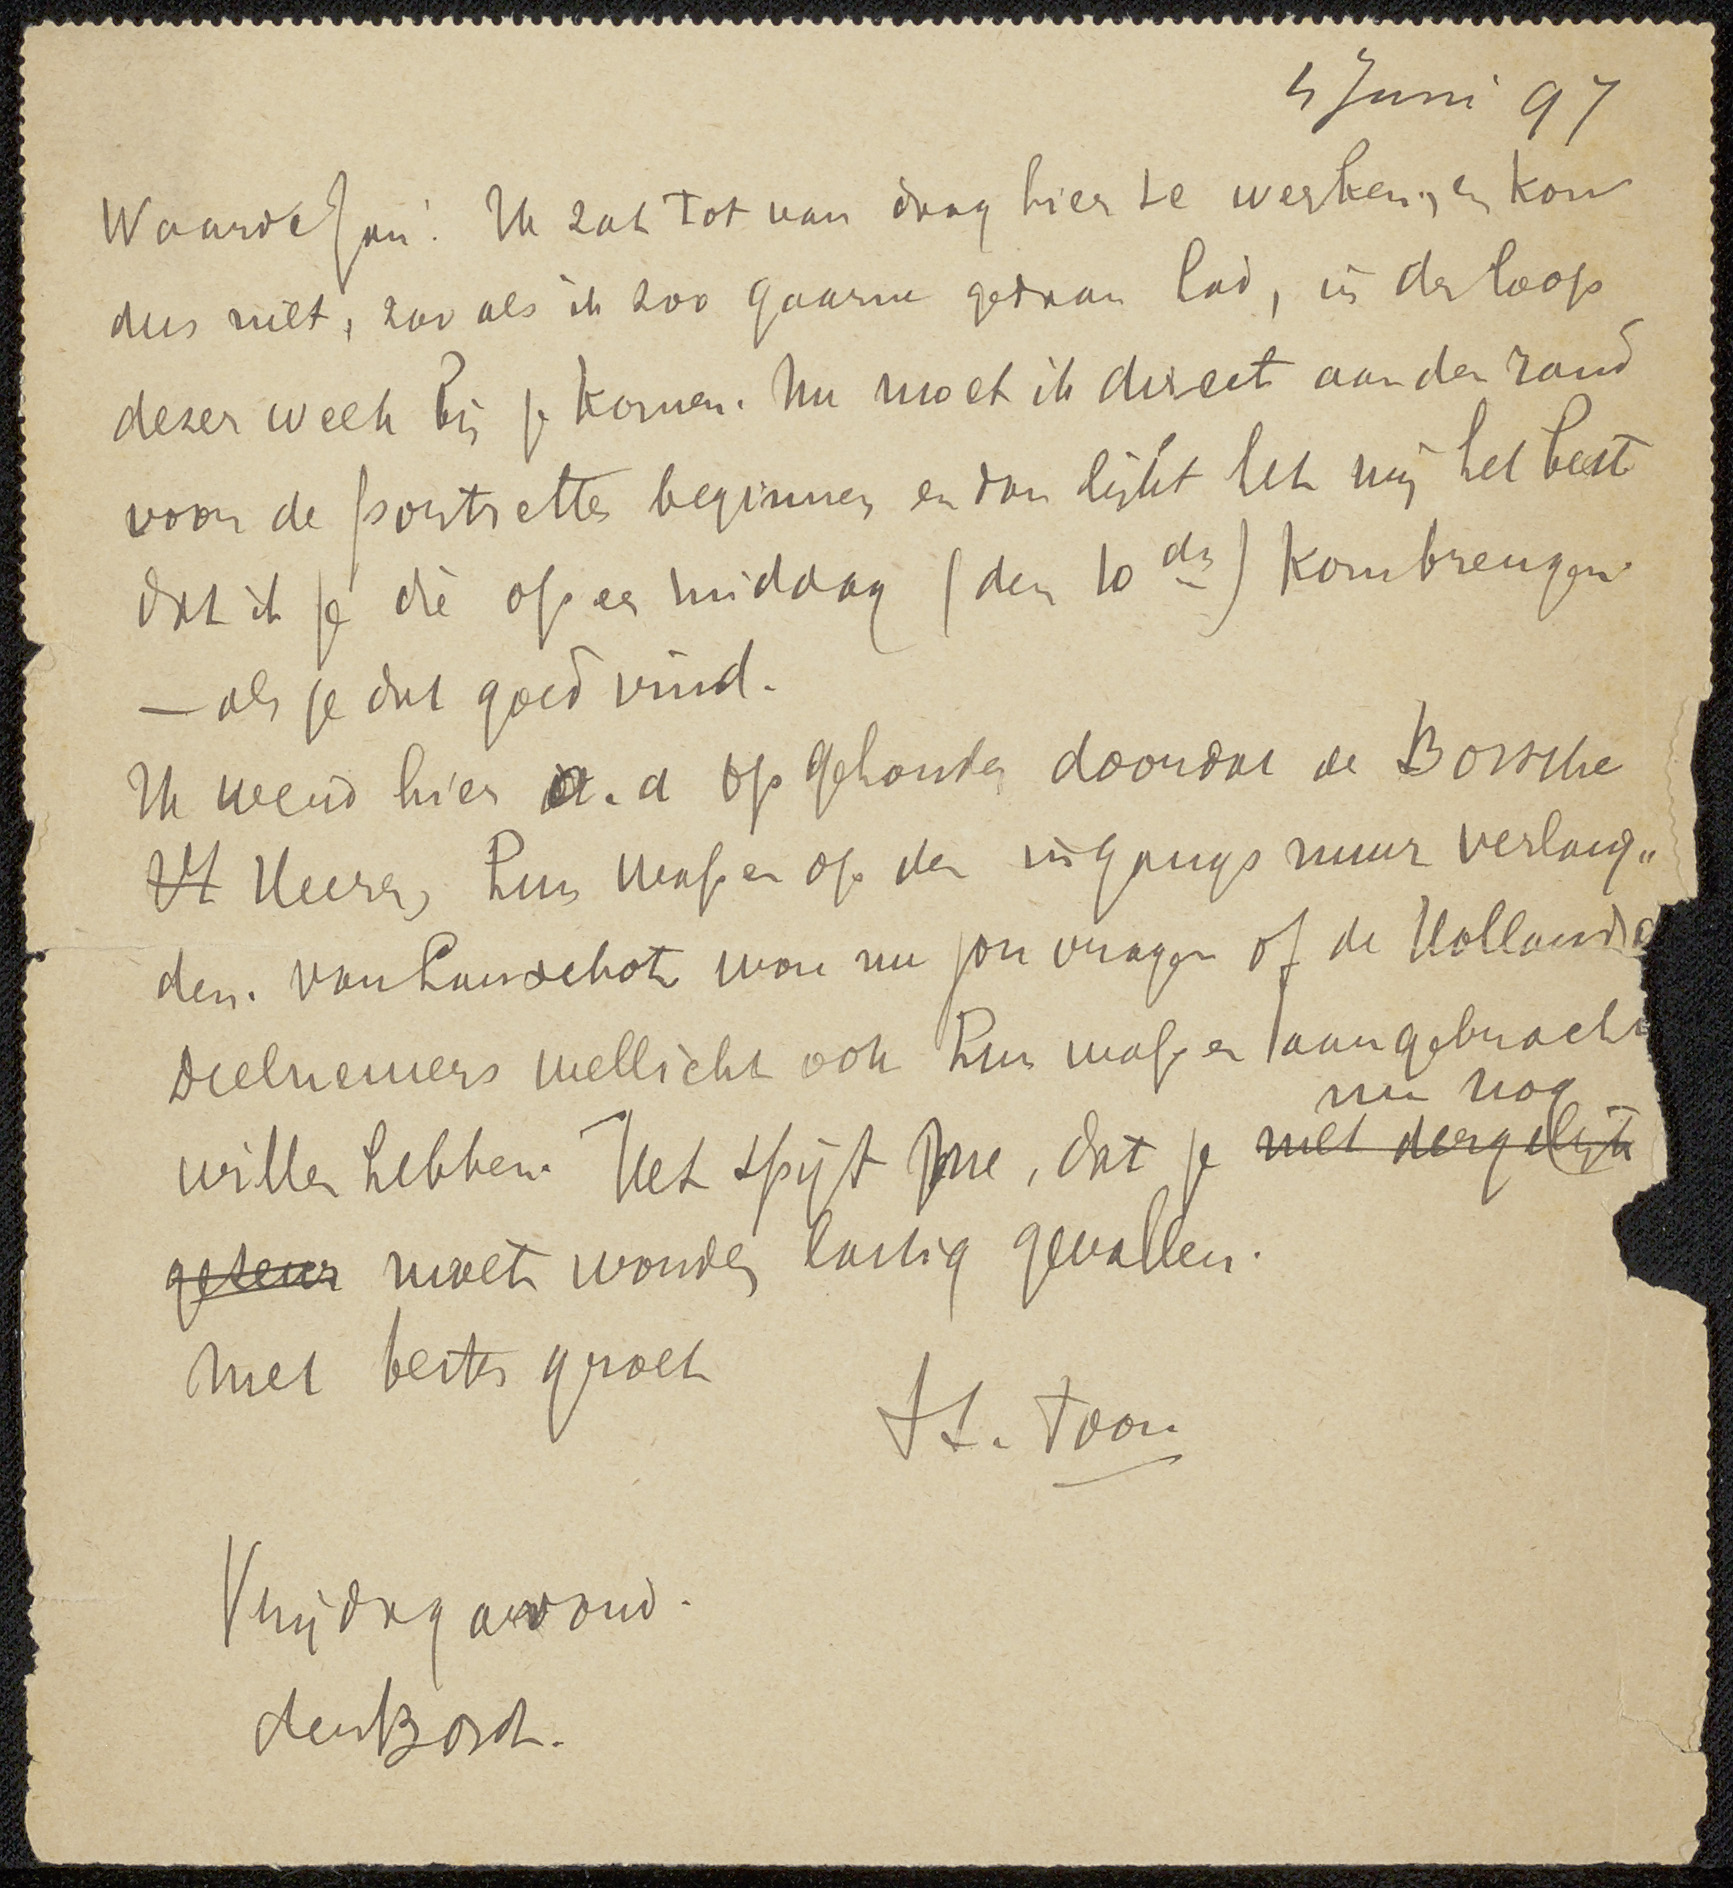 4 Juni 97
Waarde Jan! Ik zat tot van daag hier te werken, en kon
dus niet, zoo als ik zoo gaarne gedaan had, in den loop
dezer week bij je komen. Nu moet ik direct aan den rand
voor de portretten beginnen en dan lijkt het mij het best
dat ik je die op een middag (den 10den) kom brengen
— als je dat goed vind.
Ik werd hier o.a opgehouden doordat de Bossche
H Heeren hun wapen op den ingangs muur verlang„
den. van Lanschot wou nu jou vragen of de Holland
deelnemers wellicht ook hun wapen aangebracht
willen hebben. Het spijt me, dat je met dergelijk
nu nog
gezeur moet worden lastig gevallen.
Met besten groet
tt. Toon
Vrijdag avond.
den Bosch.